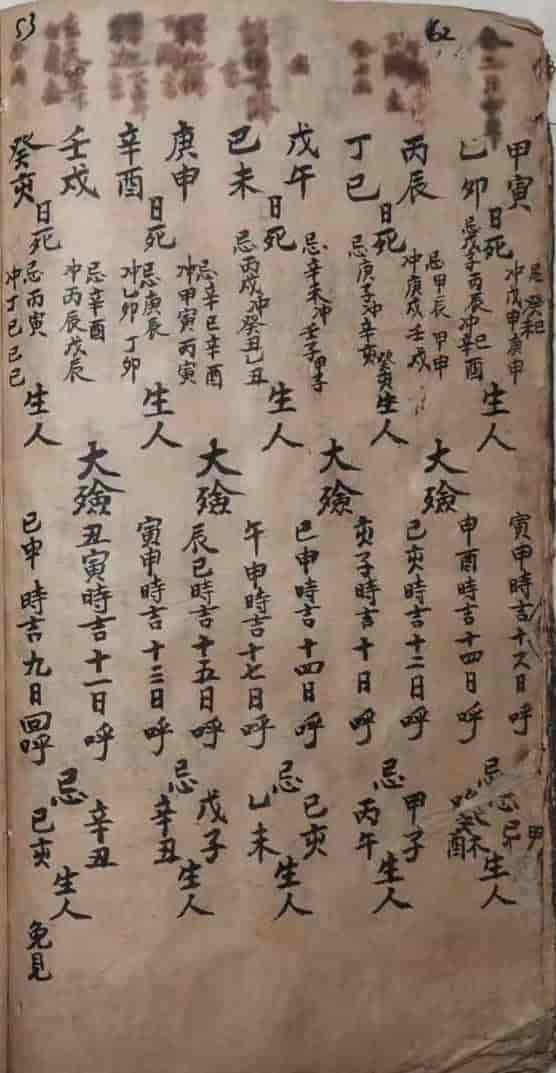 62
甲寅
冲戊申庚申
寅申時吉十六日呼
日死
生人
忌
生人
乙卯
忌戊子丙辰冲己辛酉
申酉時吉十四日呼
大殮
丙辰
忌甲辰甲申
冲庚戌壬戌
己亥時吉十二日呼
甲子
日死
生人
忌
生人
丁巳
忌庚子冲辛亥癸亥
亥子時吉十日呼
丙午
大殮
戊午
忌辛未冲壬子甲子
巳申時吉十四日呼
己亥
日死
生人
忌
生人
己未
忌丙戌冲癸丑乙丑
午申時吉十七日呼
乙未
大殮
庚申
忌辛巳辛酉
冲甲寅丙寅
辰巳時吉十五日呼
戊子
日死
生人
忌
生人
辛酉
忌庚辰
冲乙卯丁卯
寅申時吉十三日呼
辛丑
大殮
壬戌
忌辛酉
冲丙辰戊辰
丑寅時吉十一日呼
辛丑
日死
生人
忌
生人
53
癸亥
忌丙寅
冲丁巳己巳
巳申時吉九日回呼
己亥
免見